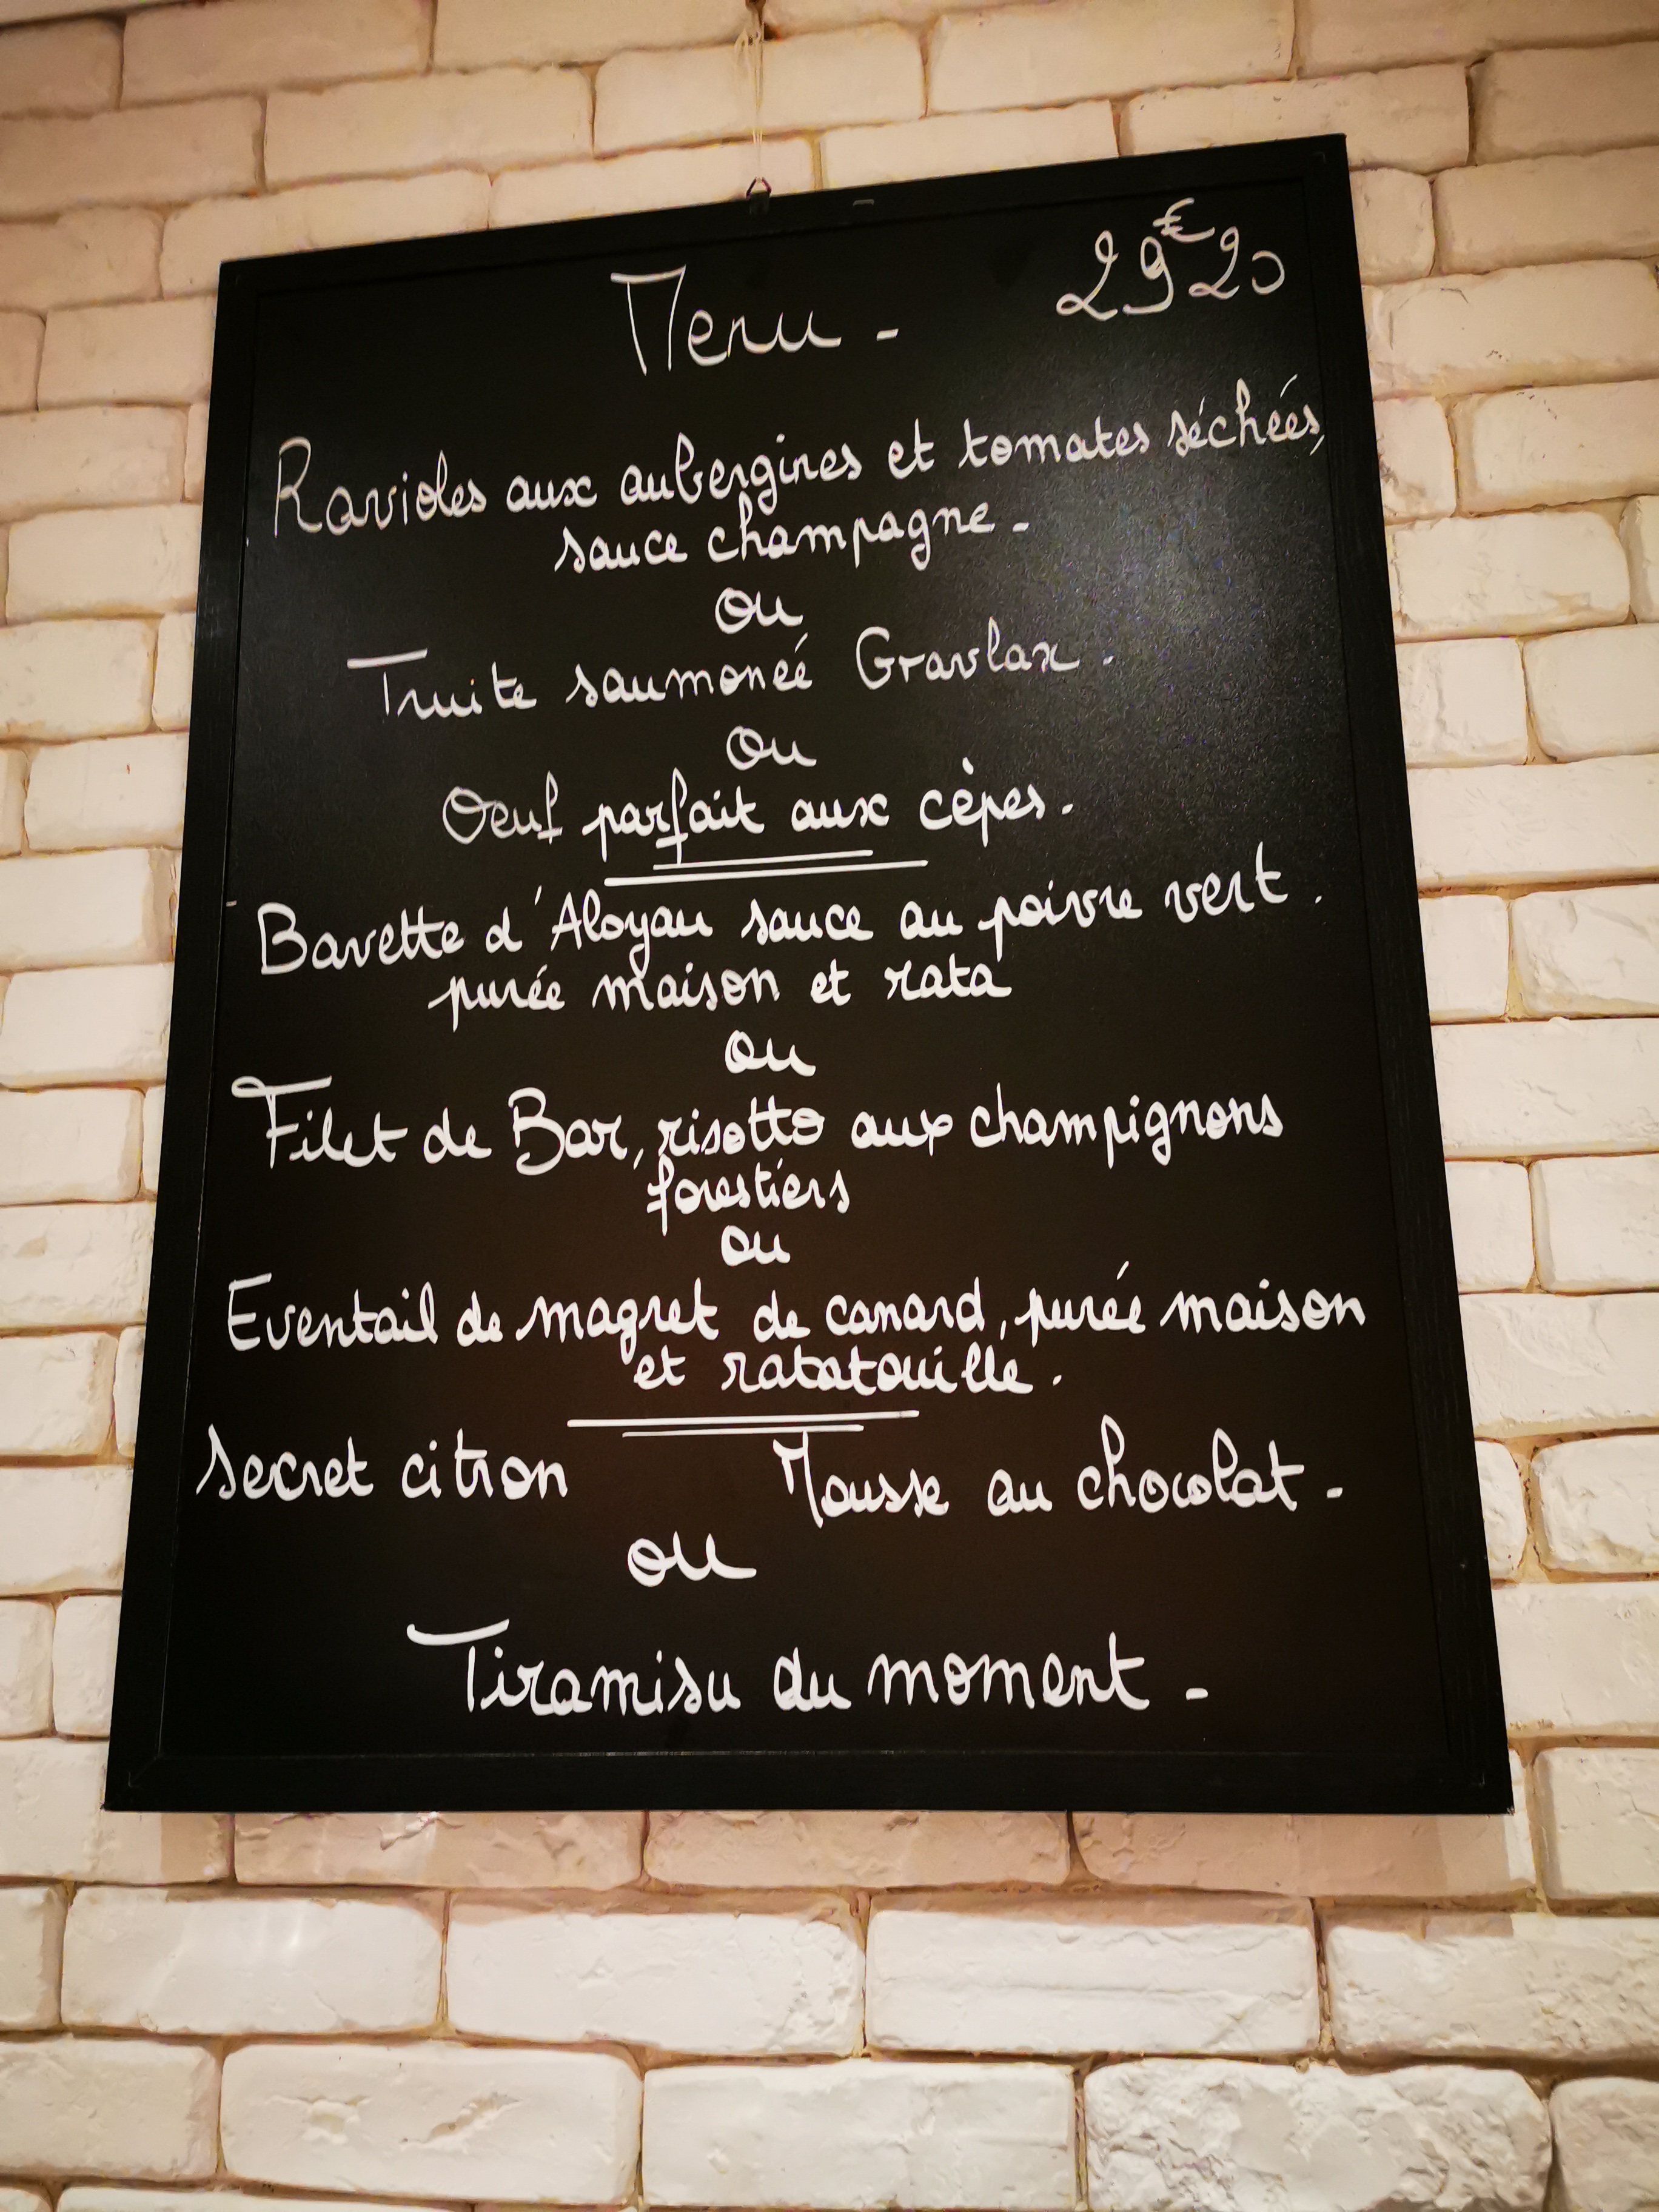 Menu - 29€20
Ravioles aux aubergines et tomates séchées,
sauce champagne -
ou
Truite saumoneé Gravlax.
ou
Oeuf parfait aux cèpes.
Bavette d'Aloyau sauce au poivre vert.
purée maison et rata
ou
Filet de Bar, risotto aux champignons
forestiers
ou
Eventail de magret de canard, purée maison
et ratatouille.
Secret citron Mousse au chocolat -
ou
Tiramisu du moment -